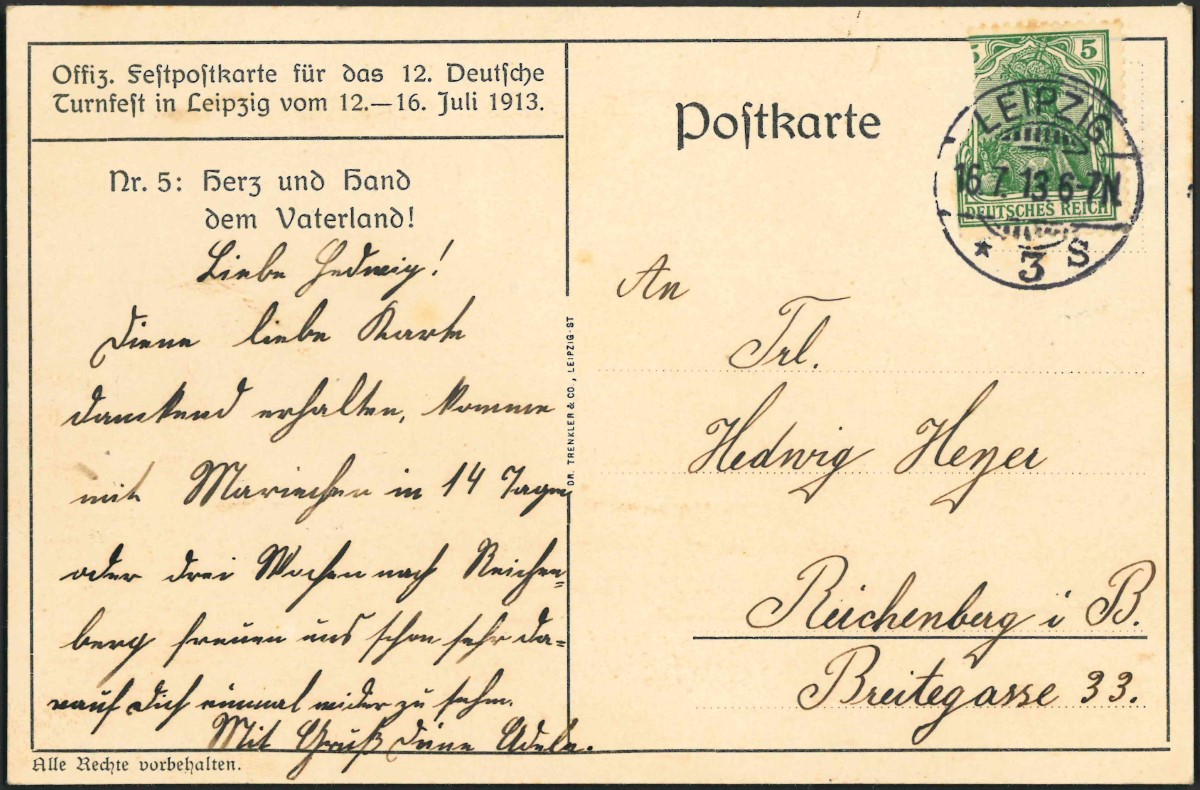 Offiz. Festpostkarte für das 12. Deutsche
Turnfest in Leipzig vom 12.—16. Juli 1913.
Nr. 5: Herz und Hand
dem Vaterland!
Liebe Hedwig!
Deine liebe Karte
dankend erhalten, komme
mit Mariechen in 14 Tagen
oder drei Wochen nach Reichen=
berg freuen uns schon sehr da=
rauf dich einmal wider zu sehen.
Mit Gruß deine Adele.
Alle Rechte vorbehalten.
DR. TRENKLER & CO., LEIPZIG-ST
Postkarte
5
DEUTSCHES REICH
LEIPZIG
16.7.13.6-7N
* 3 S
An
Frl.
Hedwig Heyer
Reichenberg i B.
Breitegasse 33.